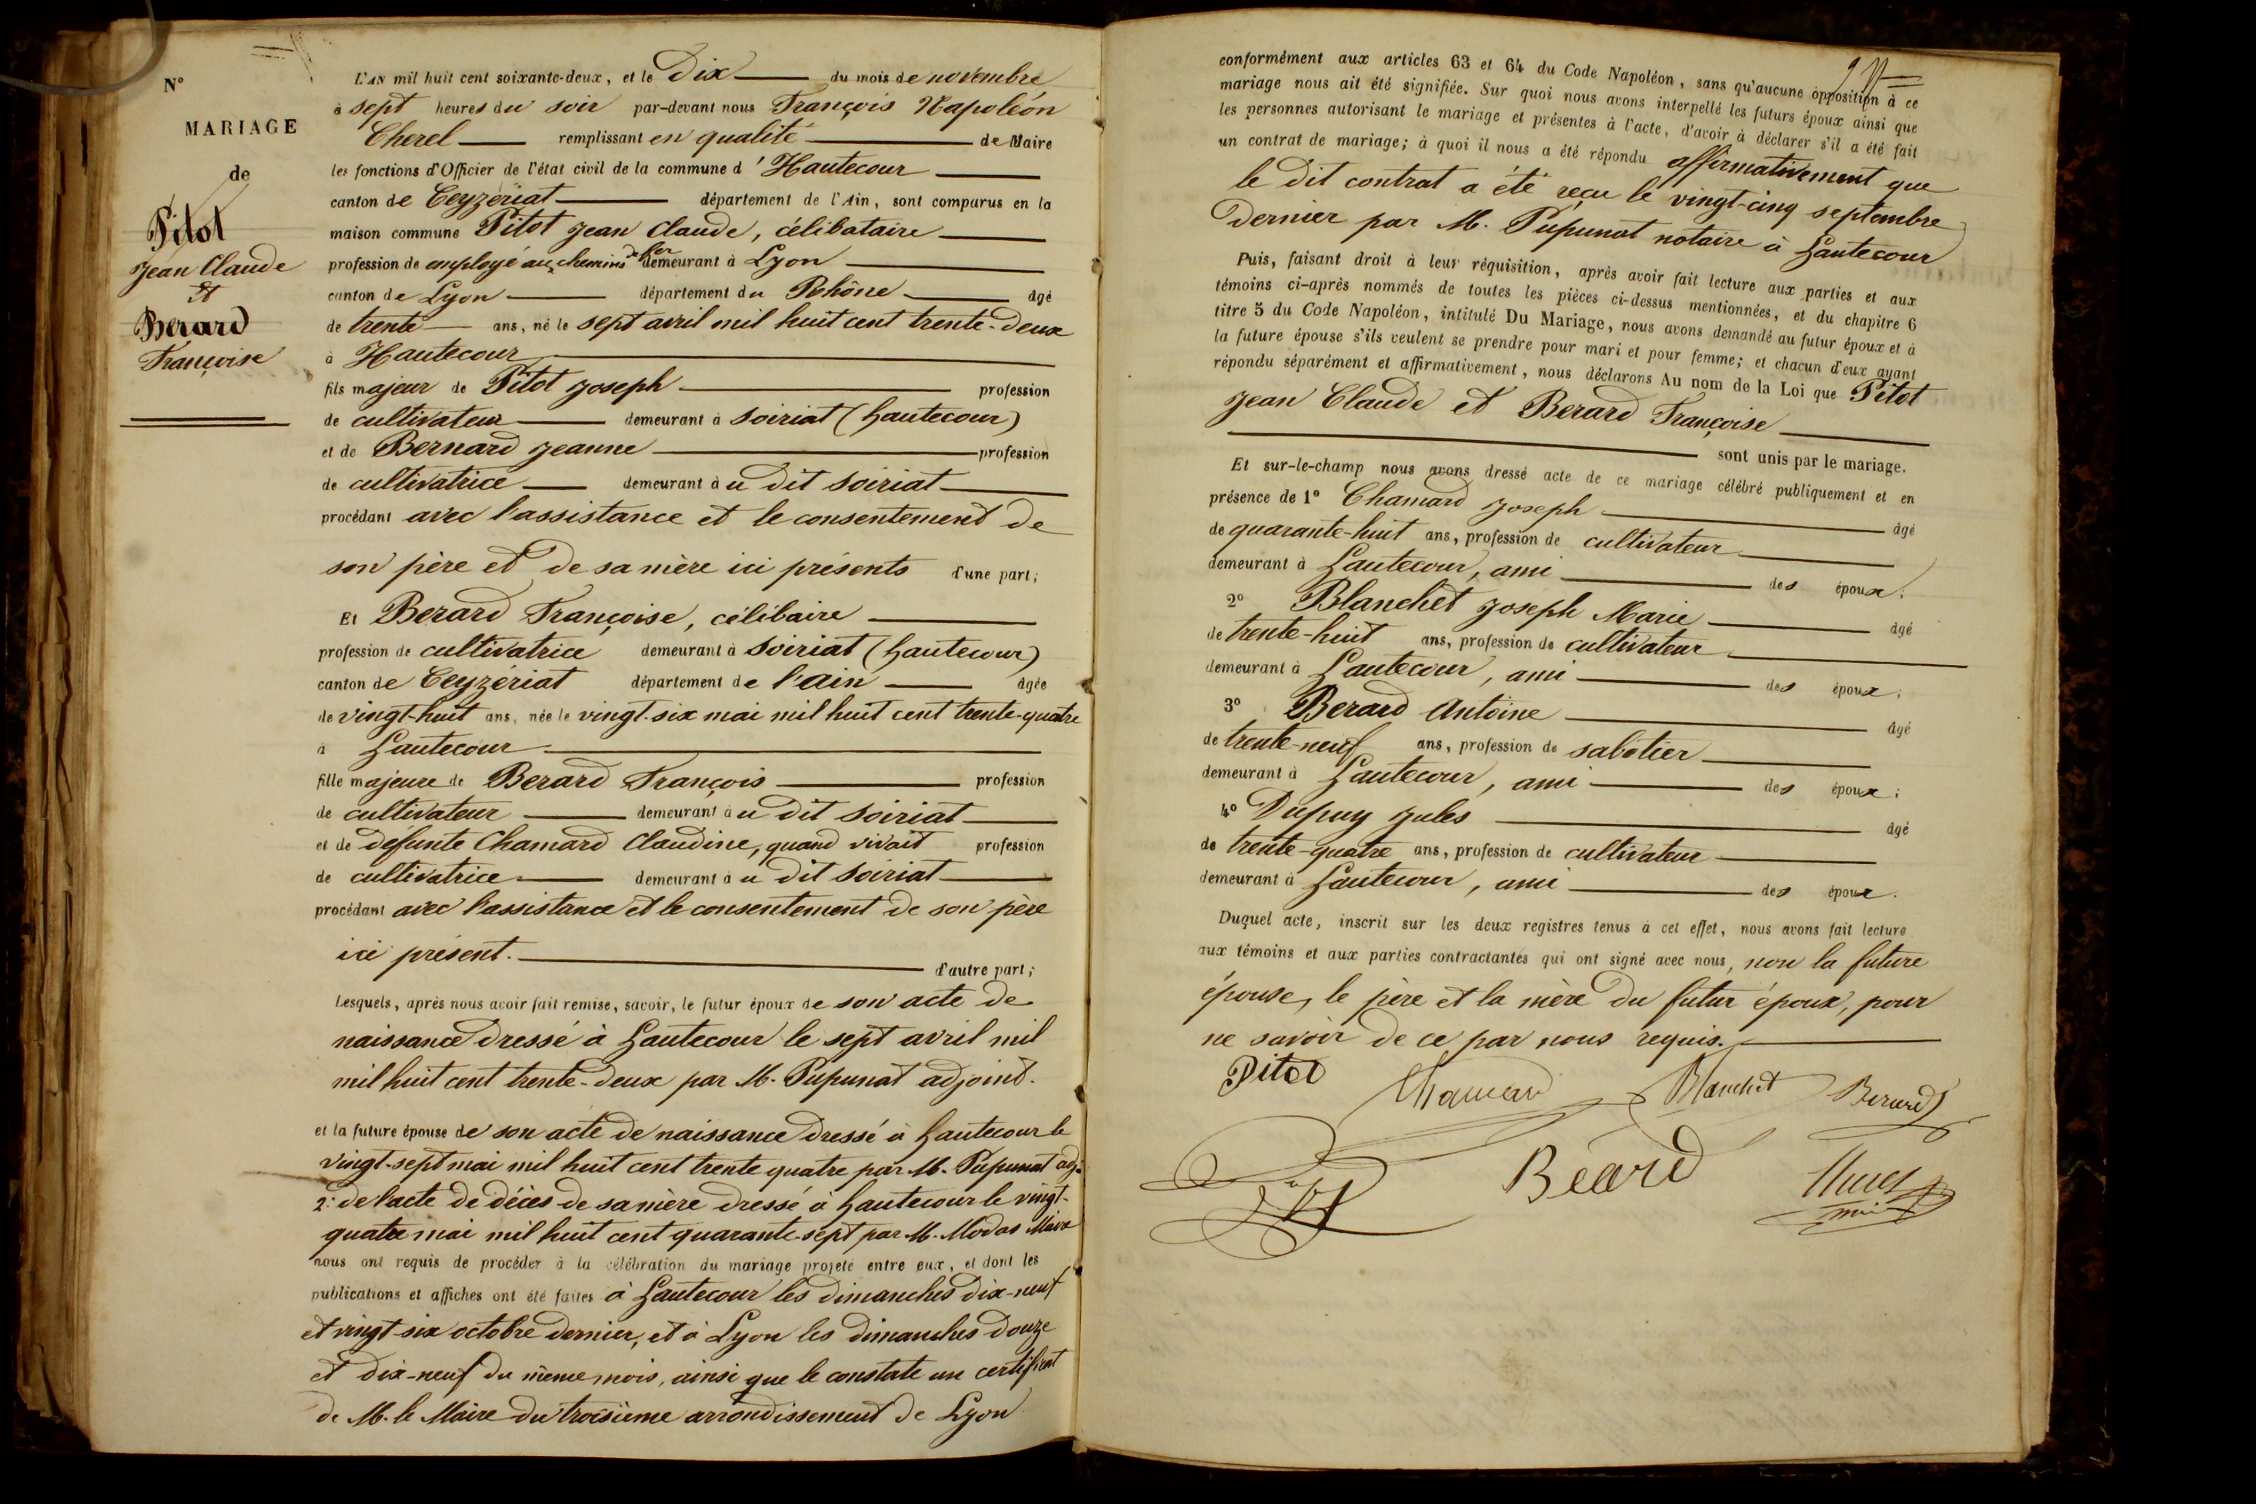 N°
MARIAGE
de
Pitot
Jean Claude
et
Berard
Françoise
L'AN mil huit cent soixante-deux, et le Dix du mois de novembre
à sept heures du soir par-devant nous François Napoléon
Cherel remplissant en qualité de Maire
les fonctions d'Officier de l'état civil de la commune d'Hautecour
canton de Ceyzériat département de l'Ain, sont comparus en la
maison commune Pitot Jean Claude, célibataire
profession de employé aux chemins de fer demeurant à Lyon
canton de Lyon département du Rohône âgé
de trente ans, né le sept avril mil huit cent trente-deux
à Hautecour
fils majeur de Pitot Joseph profession
de cultivateur demeurant à Soiriat (hautecour)
et de Bernard Jeanne profession
de cultivatrice demeurant à u dit Soiriat
procédant avec l'assistance et le consentement de
son père et de sa mère ici présents d'une part;
Et Berard Françoise, célibaire
profession de cultivatrice demeurant à Soiriat (hautecour)
canton de Ceyzériat département de l'ain âgée
de vingt-huit ans, née le vingt-six mai mil huit cent trente-quatre
à hautecour
fille majeure de Berard François profession
de cultivateur demeurant à u dit Soiriat
et de defunte Chamard Claudine, quand vivait profession
de cultivatrice demeurant à u dit Soiriat
procédant avec l'assistance et le consentement de son père
ici présent. d'autre part;
Lesquels, après nous avoir fait remise, savoir, le futur époux de son acte de
naissance dressé à hautecour le sept avril mil
mil huit cent trente-deux par M. Pupunat adjoint.
et la future épouse de son acte de naissance dressé à hautecour le
vingt-sept mai mil huit cent trente quatre par M. Pupunat adj.
2: de l'acte de décès de sa mère dressé à hautecour le vingt-
quatre mai mil huit cent quarante-sept par M. Modas Maire
nous ont requis de procéder à la célébration du mariage projeté entre eux, et dont les
publications et affiches ont été faites à hautecour les dimanches dix-neuf
et vingt-six octobre dernier, et à Lyon les dimanches douze
et dix-neuf du même mois, ainsi que le constate un certificat
de M. le Maire du troisième arrondissement de Lyon
conformément aux articles 63 et 64 du Code Napoléon, sans qu'aucune opposition à ce
mariage nous ait été signifiée. Sur quoi nous avons interpellé les futurs époux ainsi que
les personnes autorisant le mariage et présentes à l'acte, d'avoir à déclarer s'il a été fait
un contrat de mariage; à quoi il nous a été répondu affirmativement que
le dit contrat a été reçu le vingt-cinq septembre
dernier par M. Pupunat notaire à hautecour
Puis, faisant droit à leur réquisition, après avoir fait lecture aux parties et aux
témoins ci-après nommés de toutes les pièces ci-dessus mentionnées, et du chapitre 6
titre 5 du Code Napoléon, intitulé Du Mariage, nous avons demandé au futur époux et à
la future épouse s'ils veulent se prendre pour mari et pour femme; et chacun d'eux ayant
répondu séparément et affirmativement, nous déclarons Au nom de la Loi que Pitot
Jean Claude et Berard Françoise
sont unis par le mariage.
Et sur-le-champ nous avons dressé acte de ce mariage célébré publiquement et en
présence de 1° Chamard Joseph âgé
de quarante-huit ans, profession de cultivateur
demeurant à hautecour, ami des époux;
2° Blanchet Joseph Marie âgé
de trente-huit ans, profession de cultivateur
demeurant à hautecour, ami des époux;
3° Berard Antoine âgé
de trente-neuf ans, profession de sabotier
demeurant à hautecour, ami des époux;
4° Dupuy Jules âgé
de trente-quatre ans, profession de cultivateur
demeurant à hautecour, ami des époux.
Duquel acte, inscrit sur les deux registres tenus à cet effet, nous avons fait lecture
aux témoins et aux parties contractantes qui ont signé avec nous, non la future
épouse, le père et la mère du futur époux, pour
ne savoir de ce par nous requis.
Pitot Chamard Blanchet Berard
Bérard